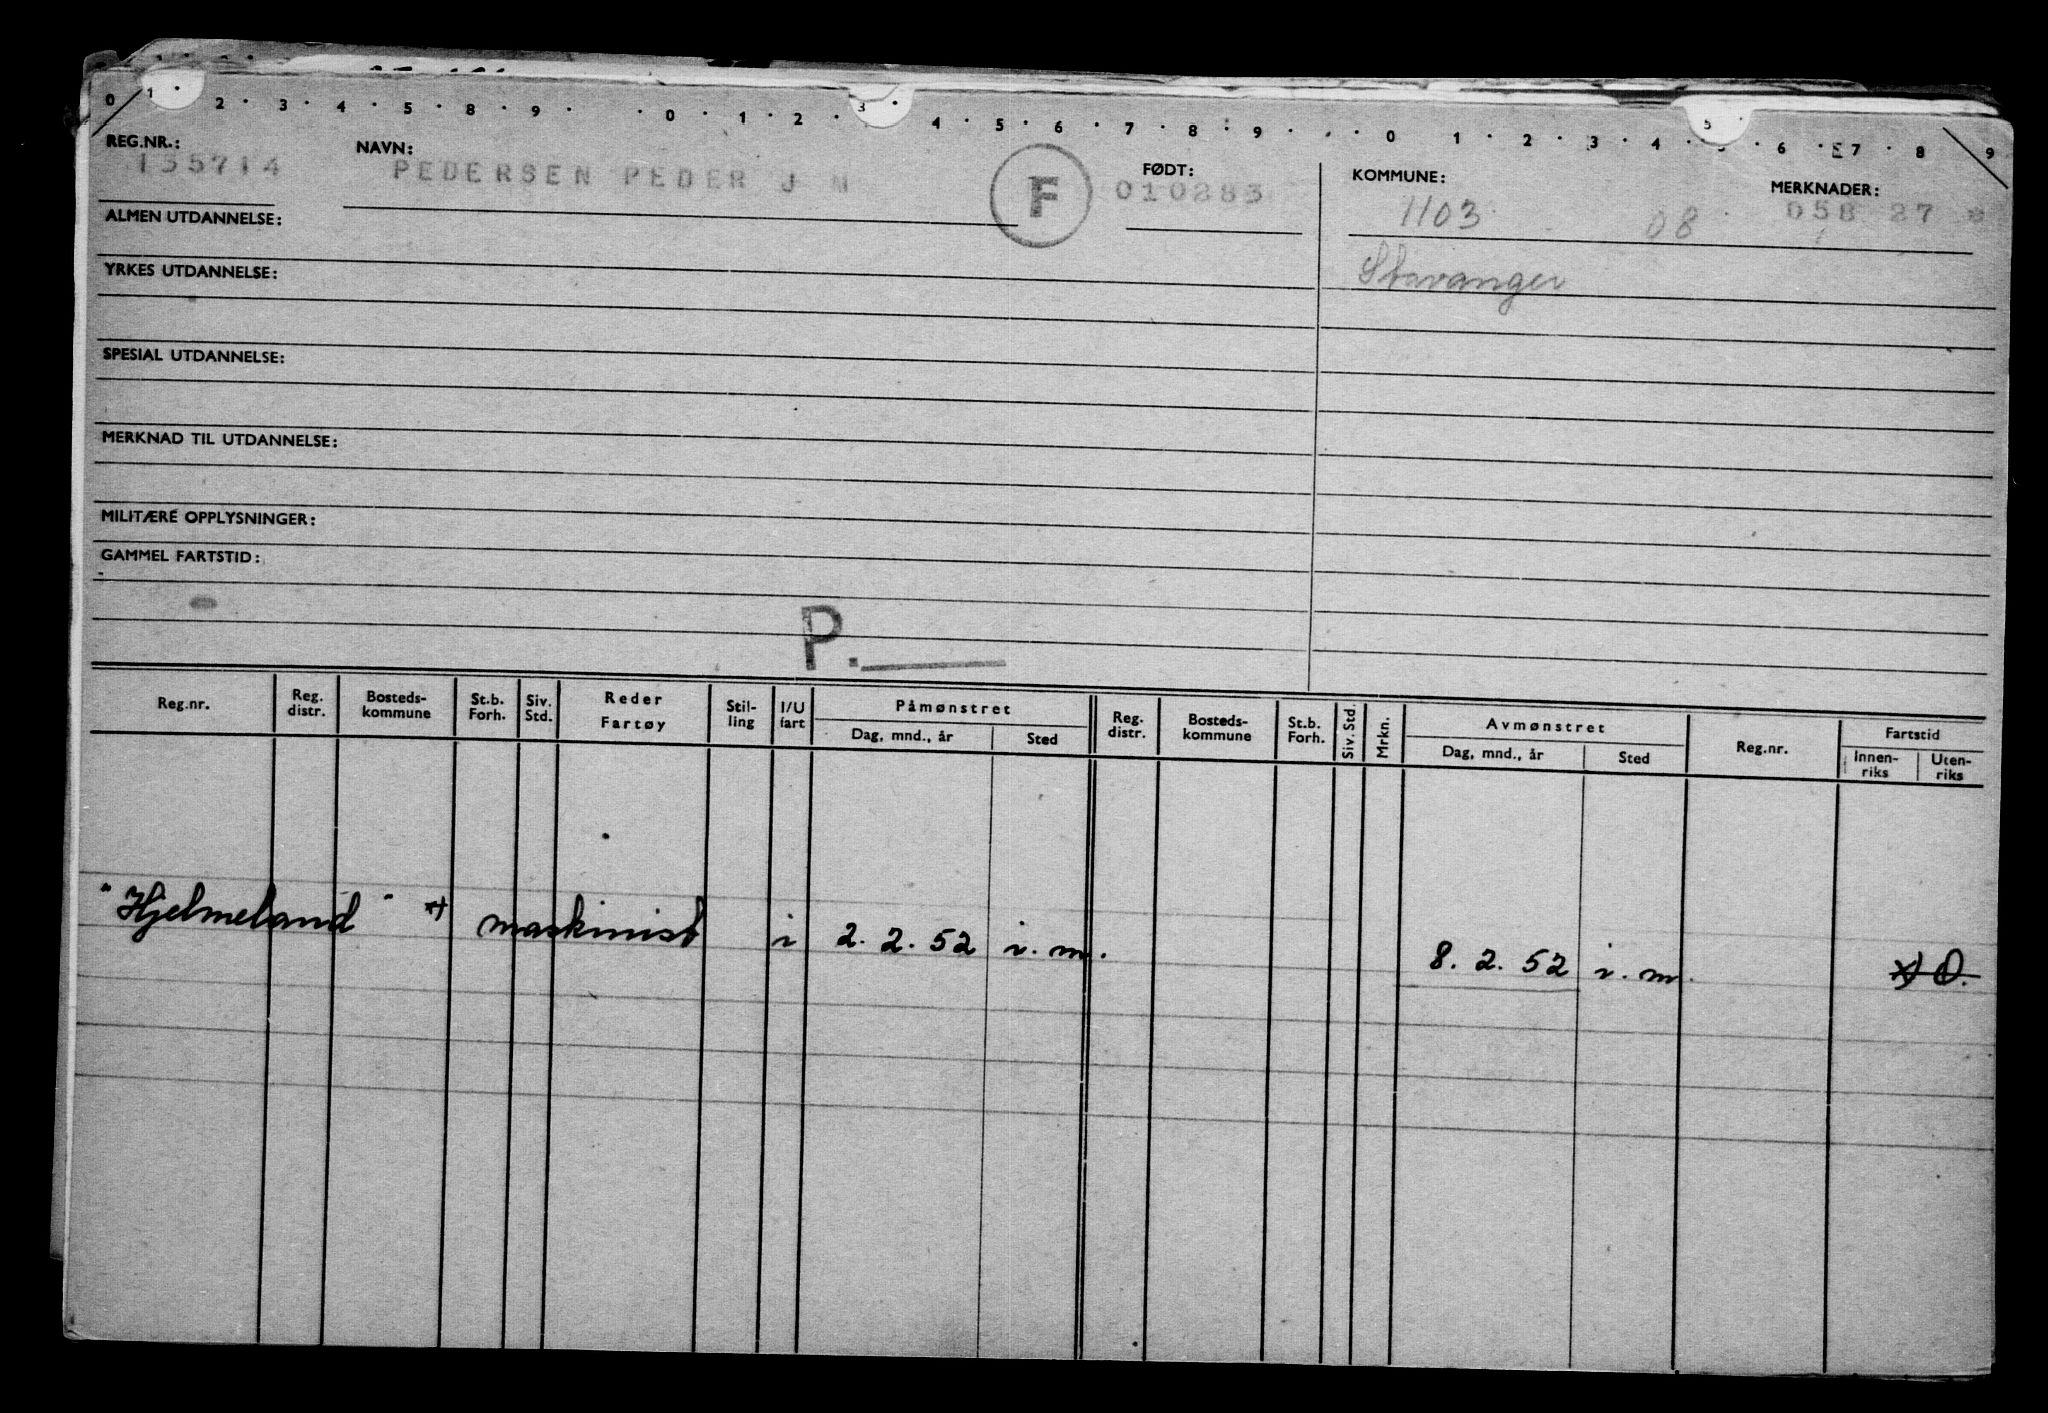 0 1 · 2 · 3 · 4 · 5 · 8 · 9 · · 0 · 1 · 2 · 3 · 4 · 5 · 6 · 7 · 8 · 9 · · · 0 · 1 · 2 · 3 · 4 · 5 · 6 · 7 · 8 9
REG.NR.: NAVN: FØDT: KOMMUNE: MERKNADER:
155714 PEDERSEN PEDER J M F 010283 1103 08 058 27 *
ALMEN UTDANNELSE:
YRKES UTDANNELSE: Stavanger
SPESIAL UTDANNELSE:
MERKNAD TIL UTDANNELSE:
MILITÆRE OPPLYSNINGER:
GAMMEL FARTSTID:
P.
Reg.nr. Reg. distr. Bosteds-kommune St.b. Forh. Siv. Std. Reder Fartøy Stil-ling I/U fart Påmønstret Dag, mnd., år Sted Reg. distr. Bosteds-kommune St.b. Forh. Siv. Std. Mrkn. Avmønstret Dag, mnd., år Sted Reg.nr. Fartstid Innen-riks Uten-riks
"Hjelmeland" maskinist i 2. 2. 52 i. m. 8. 2. 52 i. m.